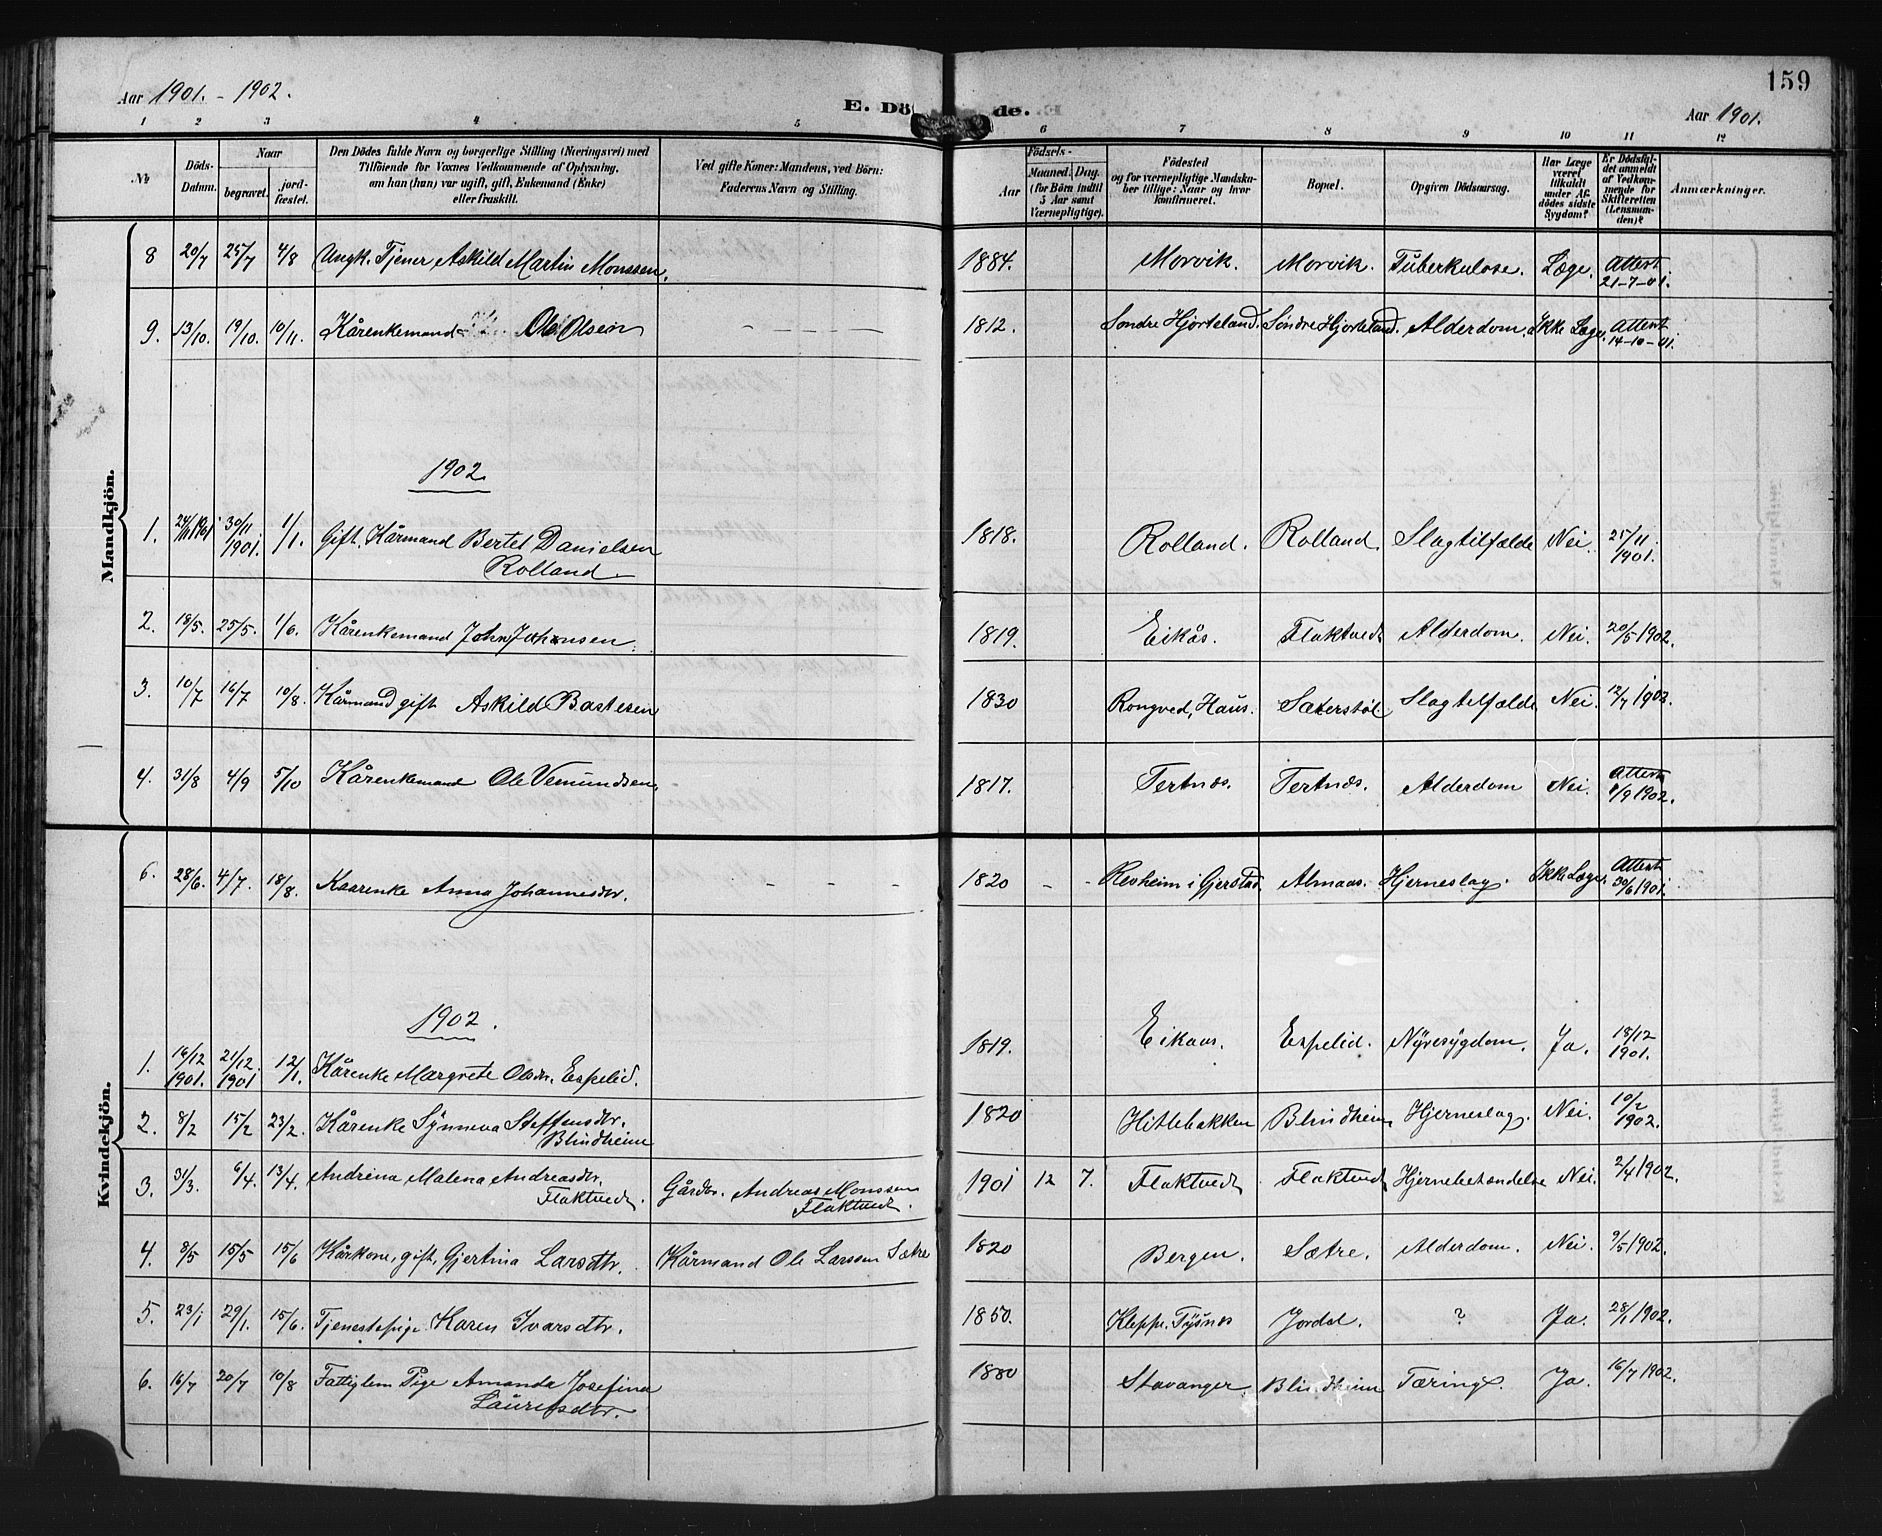 Aar 1901. - 1902.
E. Dö de.
159
Aar 1901.
1 2 3 4 5 6 7 8 9 10 11 12
№
Döds-Datum.
Naar
begravet.
jord-fæstet.
Den Dödes fulde Navn og borgerlige Stilling (Næringsvei) med
Tilföiende for Voxnes Vedkommende af Oplysning,
om han (hun) var ugift, gift, Enkemand (Enke)
eller fraskilt.
Ved gifte Koner: Mandens, ved Börn:
Faderens Navn og Stilling.
Födsels-
Aar
Maaned. Dag.
(for Börn indtil
5 Aar samt
Værnepligtige).
Födested
og for værnepligtige Mandska-
ber tillige: Naar og hvor
konfirmeret.
Bopæl.
Opgiven Dödsaarsag.
Har Læge
været
tilkaldt
under Af-
dödes sidste
Sygdom?
Er Dödsfal-
det anmeldt
af Vedkom-
mende for
Skifteretten
(Lensman-
den)?
Anmærkninger.
Mandkjön.
8 20/7 25/7 4/8 Ungk. Tjener, Askild Martin Monssen. 1884. Morvik. Morvik. Tuberkulose. Læge. Attest 21-7-01.
9. 13/10. 19/10. 10/11. Kårenkemand Ole Olsen - - - - 1812. Søndre Hjorteland. Søndre Hjorteland. Alderdom. Ikke Læge. Attest 14-10-01.
1902.
1. 24/11 1901 30/11 1901. 1/1. Gift. Kårmand Bertel Danielsen
Rolland. 1818. Rolland. Rolland. Slagtilfælde Nei. 25/11 1901.
2. 18/5. 25/5. 1/6. Kårenkemand John Johnsen. 1819. Eikås. Flaktvedt Alderdom. Nei. 20/5 1902.
3. 10/7 16/7 10/8. Kårmand gift Askild Bastesen 1830 Rongved, Haus. Sæterstøl. Slagtilfælde Nei. 12/7 1902.
4. 31/8 4/9 5/10 Kårenkemand Ole Vemundsen, 1817. Tertnæs. Tertnæs. Alderdom Nei. Attest 1/9 1902.
Kvindekjön.
6. 28/6. 4/7. 18/8. Kaarenke Anna Johannesdtr. - - - 1820 - - i Gjerstad Almaas. Hjerneslag. Ikke Læge. Attest 30/6 1901.
1902.
1. 16/12 1901. 21/12. 1901 12/1. Kårenke Margrete Olsdtr. Espelid. 1819. Eikaas. Espelid. Nyresygdom. Ja. 18/12 1901.
2. 8/2 15/2 23/2. Kårenke Synneva Steffensdtr.
Blindheim 1820 Hitlebakken Blindheim Hjerneslag. Nei. 10/2 1902.
3. 31/3. 6/4. 13/4. Andrina Malena Andreasdtr.
Flaktvedt. Gårdbr. Andreas Monssen
Flaktvedt. 1901 12 7. Flaktvedt Flaktvedt Hjernebetændelse Nei. 2/4 1902.
4. 8/5 15/5 15/6 Kårkone, gift, Gjertina Larsdtr. Kårmand Ole Larssen Sætre 1820 Bergen. Sætre. Alderdom. Nei. 9/5 1902.
5. 23/1 29/1. 15/6. Tjenestepige Karen Ivarsdtr. 1850. Kleppe, Tysnes Jordal. ? Ja. 28/1 1902.
6. 16/7 20/7 10/8 Fattiglem Pige Amanda Josefina
Lauritsdtr. 1880 Stavanger. Blindheim Tæring. Ja. 16/7 1902.